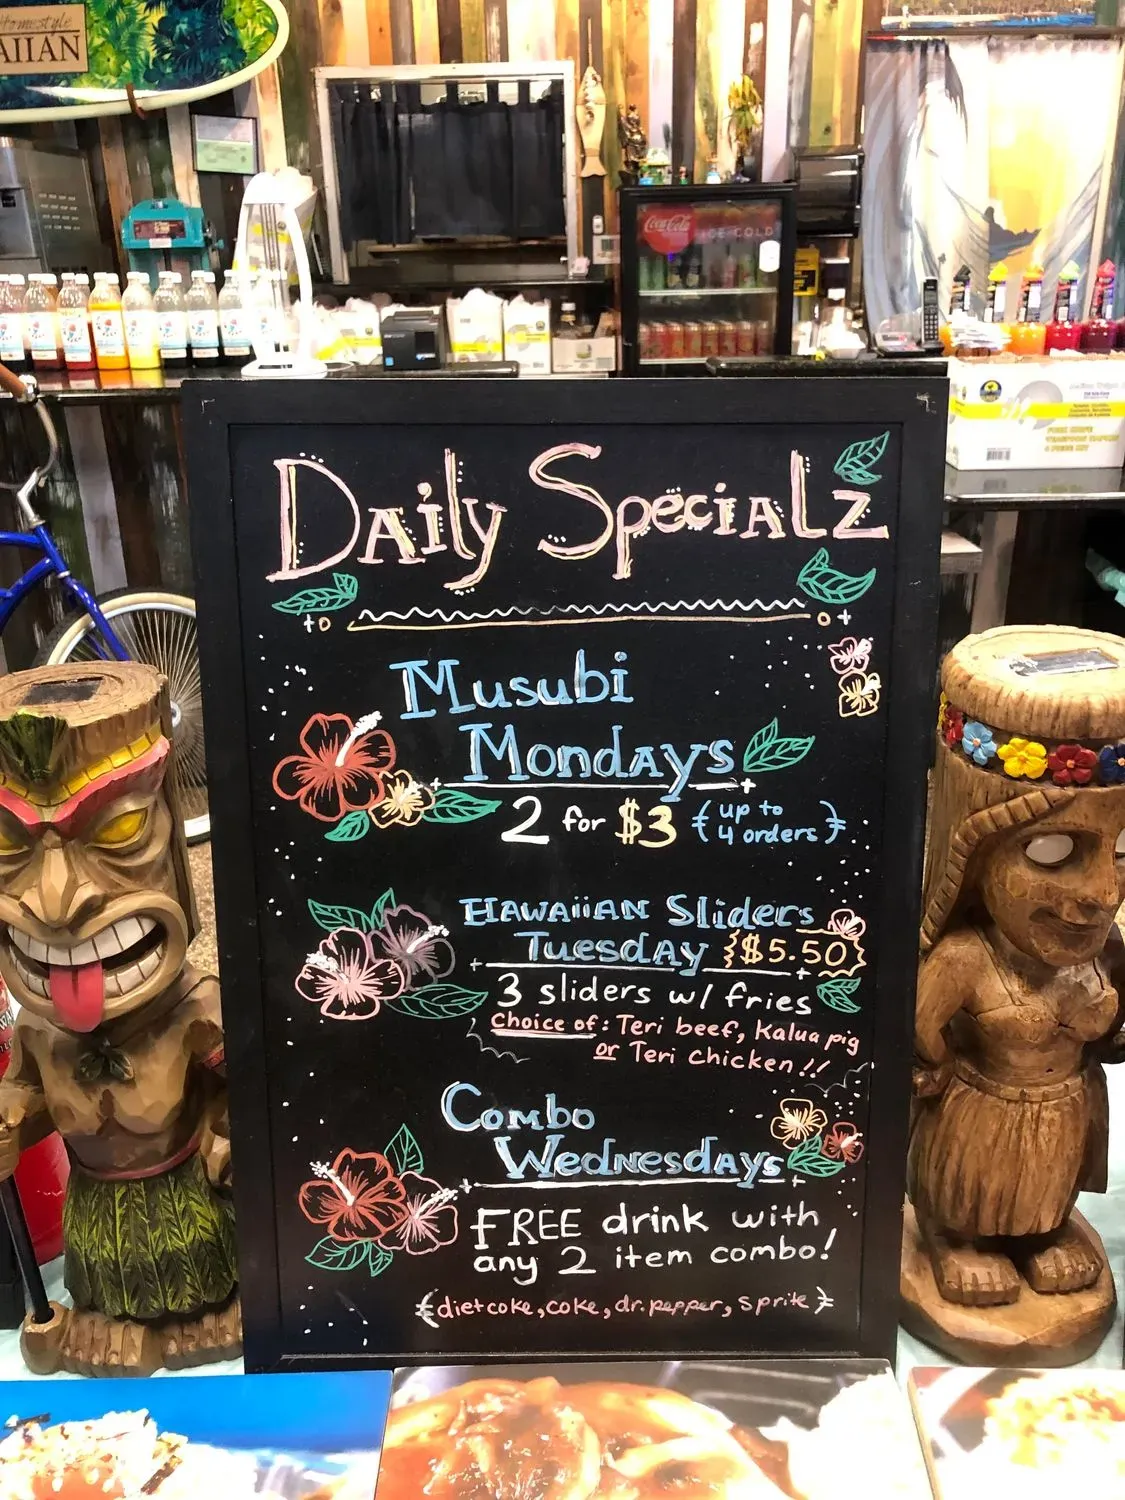 Homestyle
AIIAN
Coca-Cola
ICE COLD
Daily Specialz
Musubi
Mondays
2 for $3 (up to
4 orders)
Hawaiian Sliders
Tuesday $5.50
3 sliders w/ fries
Choice of: Teri beef, Kalua pig
or Teri chicken!!
Combo
Wednesdays
FREE drink with
any 2 item combo!
(diet coke, coke, dr. pepper, sprite)